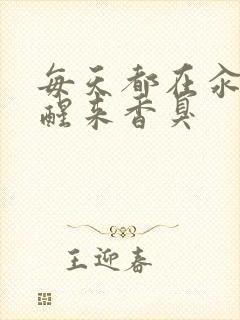 每天都在汆
醒来香臭
王迎春